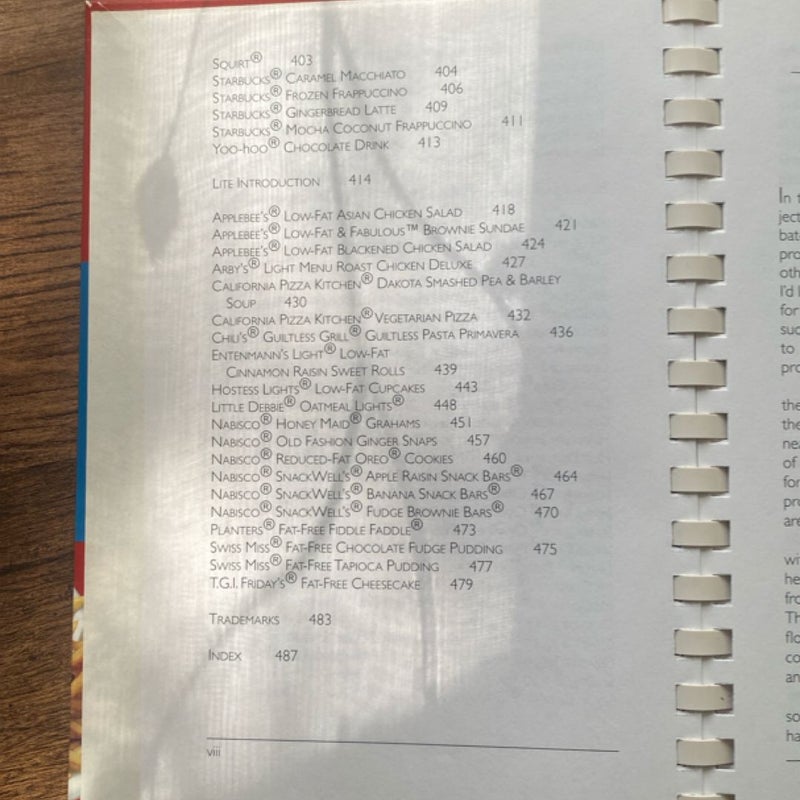 Squirt® 403
Starbucks® Caramel Macchiato 404
Starbucks® Frozen Frappuccino 406
Starbucks® Gingerbread Latte 409
Starbucks® Mocha Coconut Frappuccino 411
Yoo-hoo® Chocolate Drink 413
Lite Introduction 414
Applebee's® Low-Fat Asian Chicken Salad 418
Applebee's® Low-Fat & Fabulous™ Brownie Sundae 421
Applebee's® Low-Fat Blackened Chicken Salad 424
Arby's® Light Menu Roast Chicken Deluxe 427
California Pizza Kitchen® Dakota Smashed Pea & Barley
Soup 430
California Pizza Kitchen® Vegetarian Pizza 432
Chili's® Guiltless Grill® Guiltless Pasta Primavera 436
Entenmann's Light® Low-Fat
Cinnamon Raisin Sweet Rolls 439
Hostess Lights® Low-Fat Cupcakes 443
Little Debbie® Oatmeal Lights® 448
Nabisco® Honey Maid® Grahams 451
Nabisco® Old Fashion Ginger Snaps 457
Nabisco® Reduced-Fat Oreo® Cookies 460
Nabisco® SnackWell's® Apple Raisin Snack Bars® 464
Nabisco® SnackWell's® Banana Snack Bars® 467
Nabisco® SnackWell's® Fudge Brownie Bars® 470
Planters® Fat-Free Fiddle Faddle® 473
Swiss Miss® Fat-Free Chocolate Fudge Pudding 475
Swiss Miss® Fat-Free Tapioca Pudding 477
T.G.I. Friday's® Fat-Free Cheesecake 479
Trademarks 483
Index 487
viii
In
ject
bat
pro
oth
I'd
for
suc
to
pro
the
the
nea
of
for
pre
are
wi
he
fro
Th
flo
co
an
so
ha